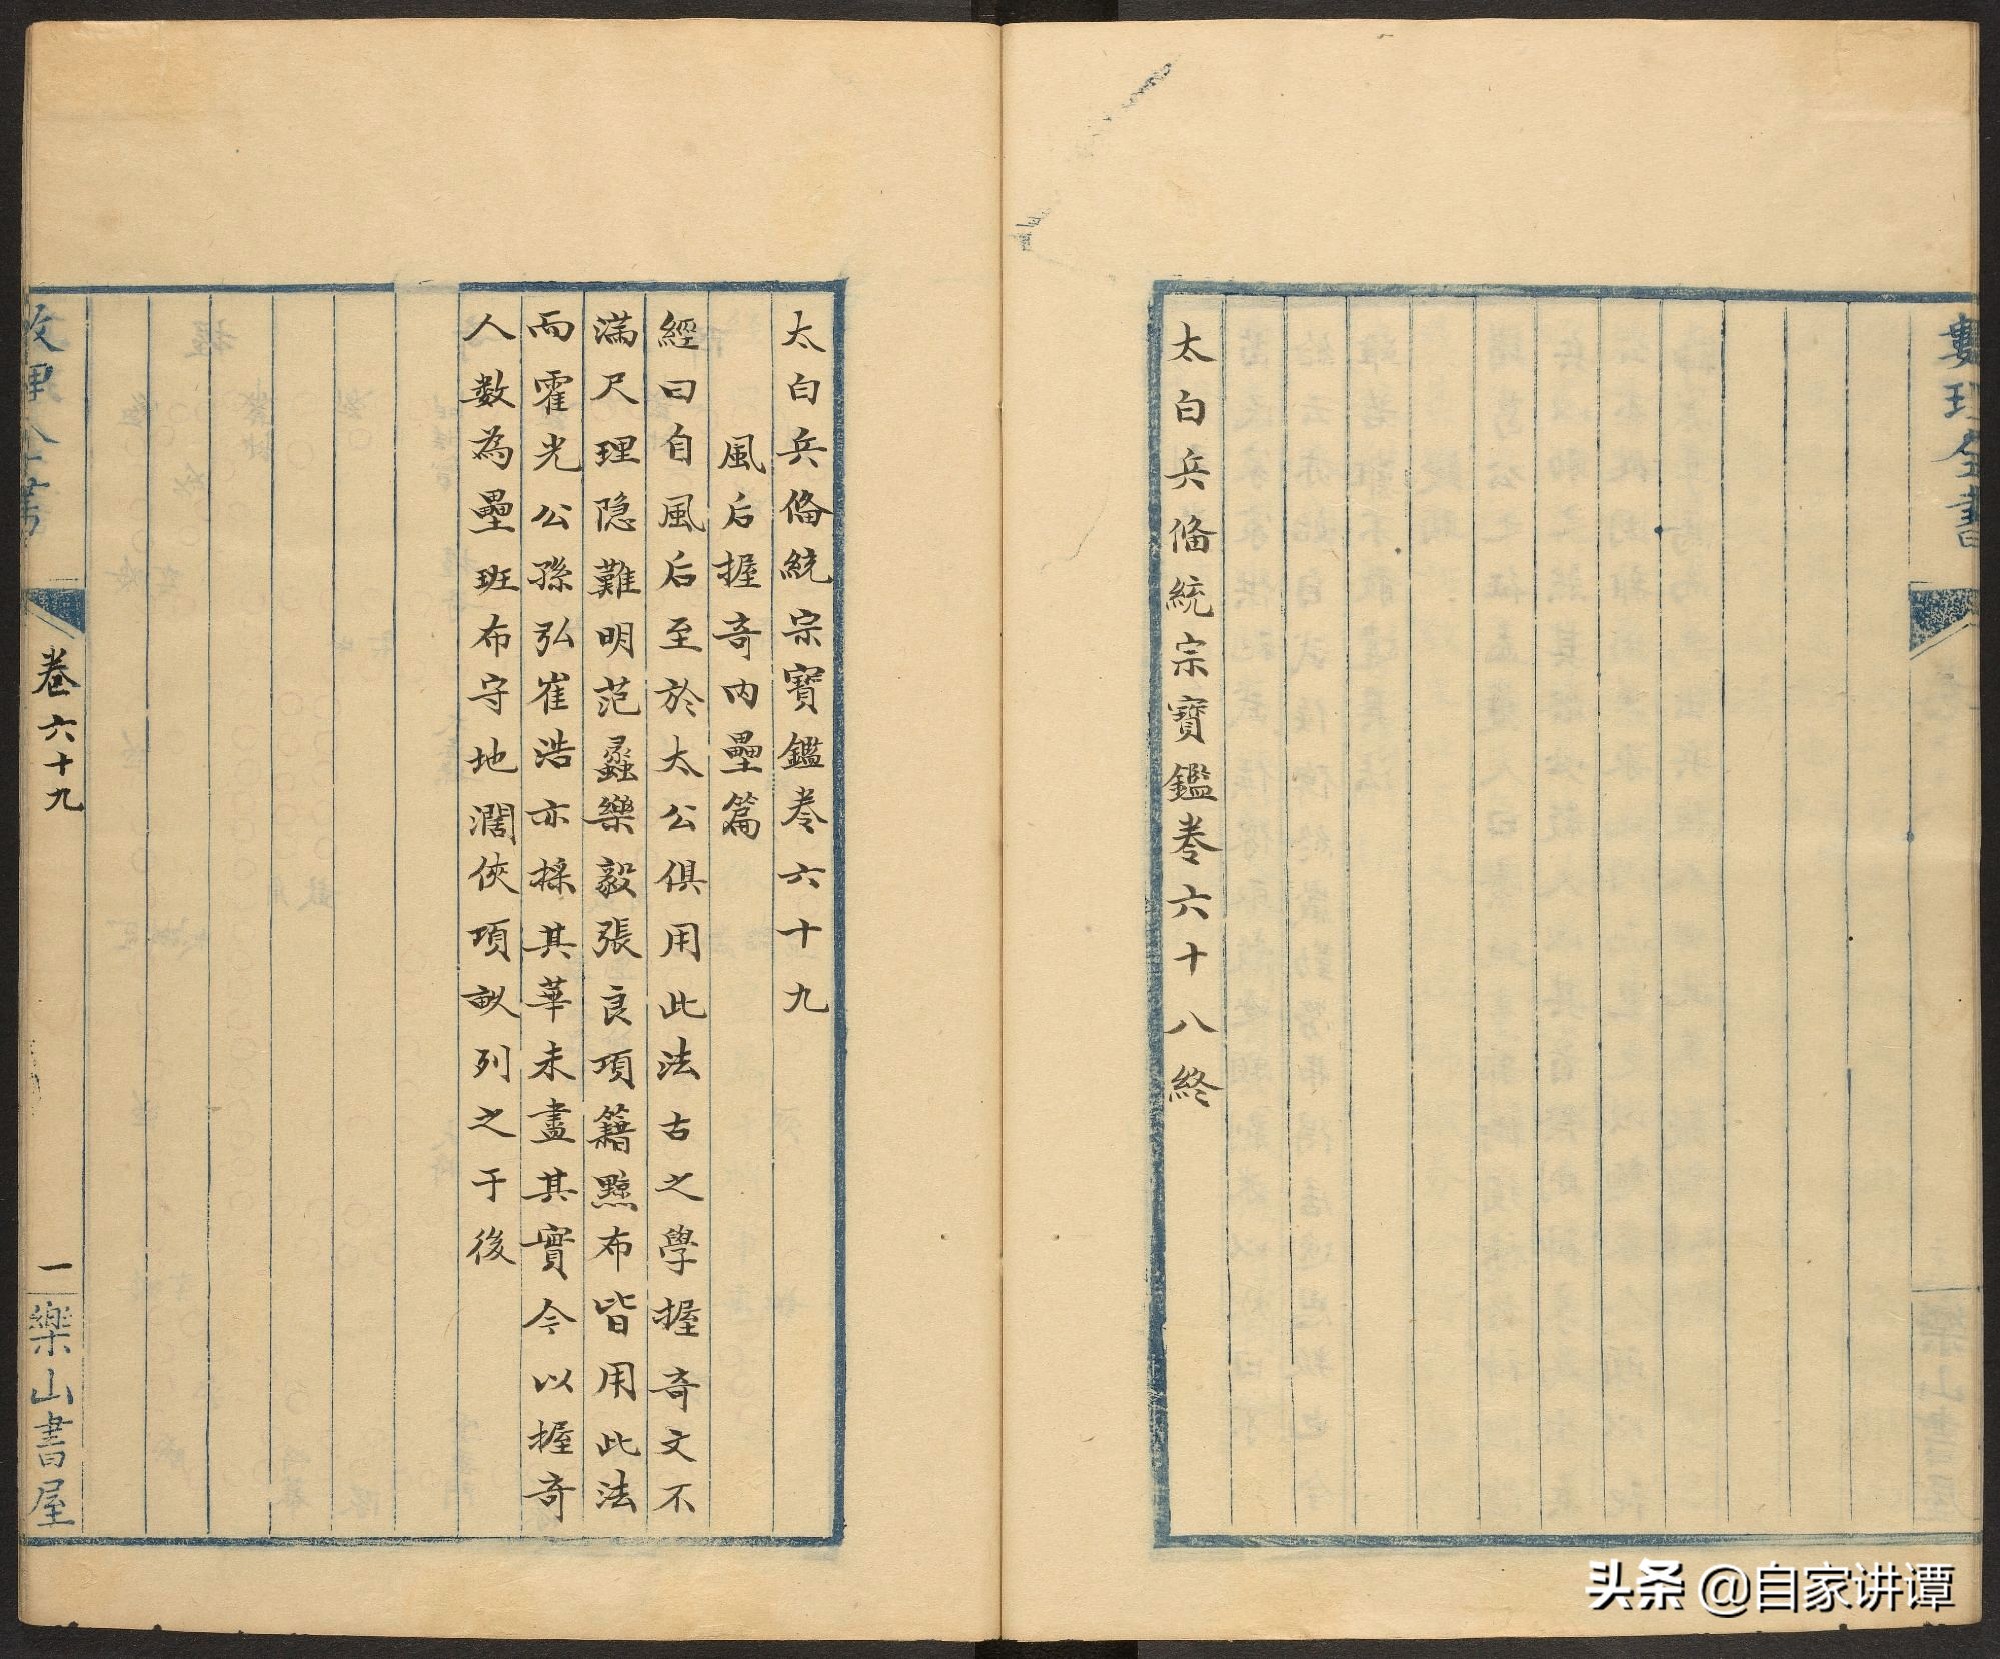 數理全書
樂山書屋
太白兵俻統宗寶鑑卷六十八終
太白兵俻統宗寶鑑卷六十九
風后握奇内壘篇
經曰自風后至於太公俱用此法古之學握奇文不
滿尺理隐難明范蠡樂毅張良項籍黥布皆用此法
而霍光公孫弘崔浩亦採其華未盡其實今以握奇
人数為壘班布守地濶俠項畝列之于後
數理全書
卷六十九
一
樂山書屋
头条 @自家讲谭